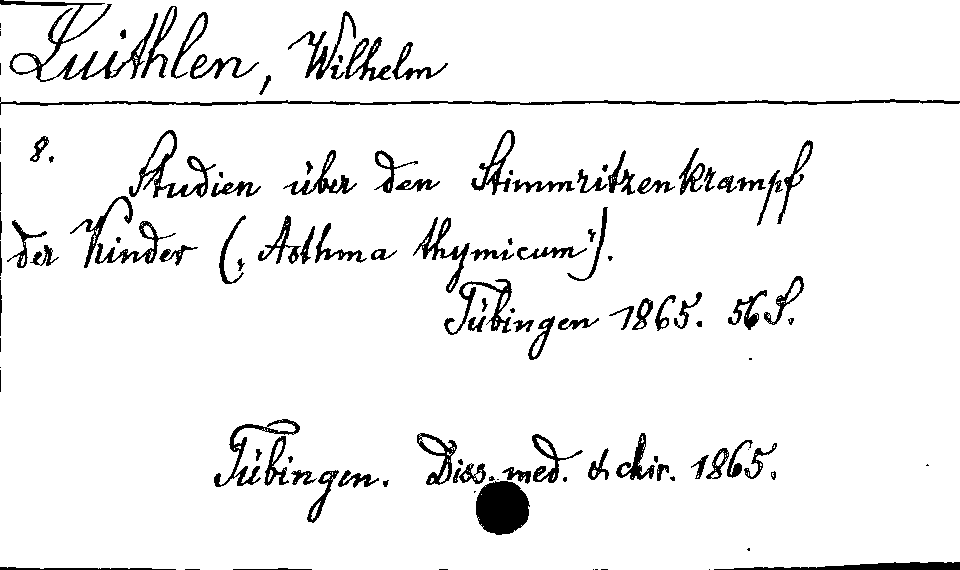 Luithlen, Wilhelm
8. Studien über den Stimmritzenkrampf
der Kinder („Asthma thymicum").
Tübingen 1865. 56 S.
Tübingen. Diss. med. & chir. 1865.